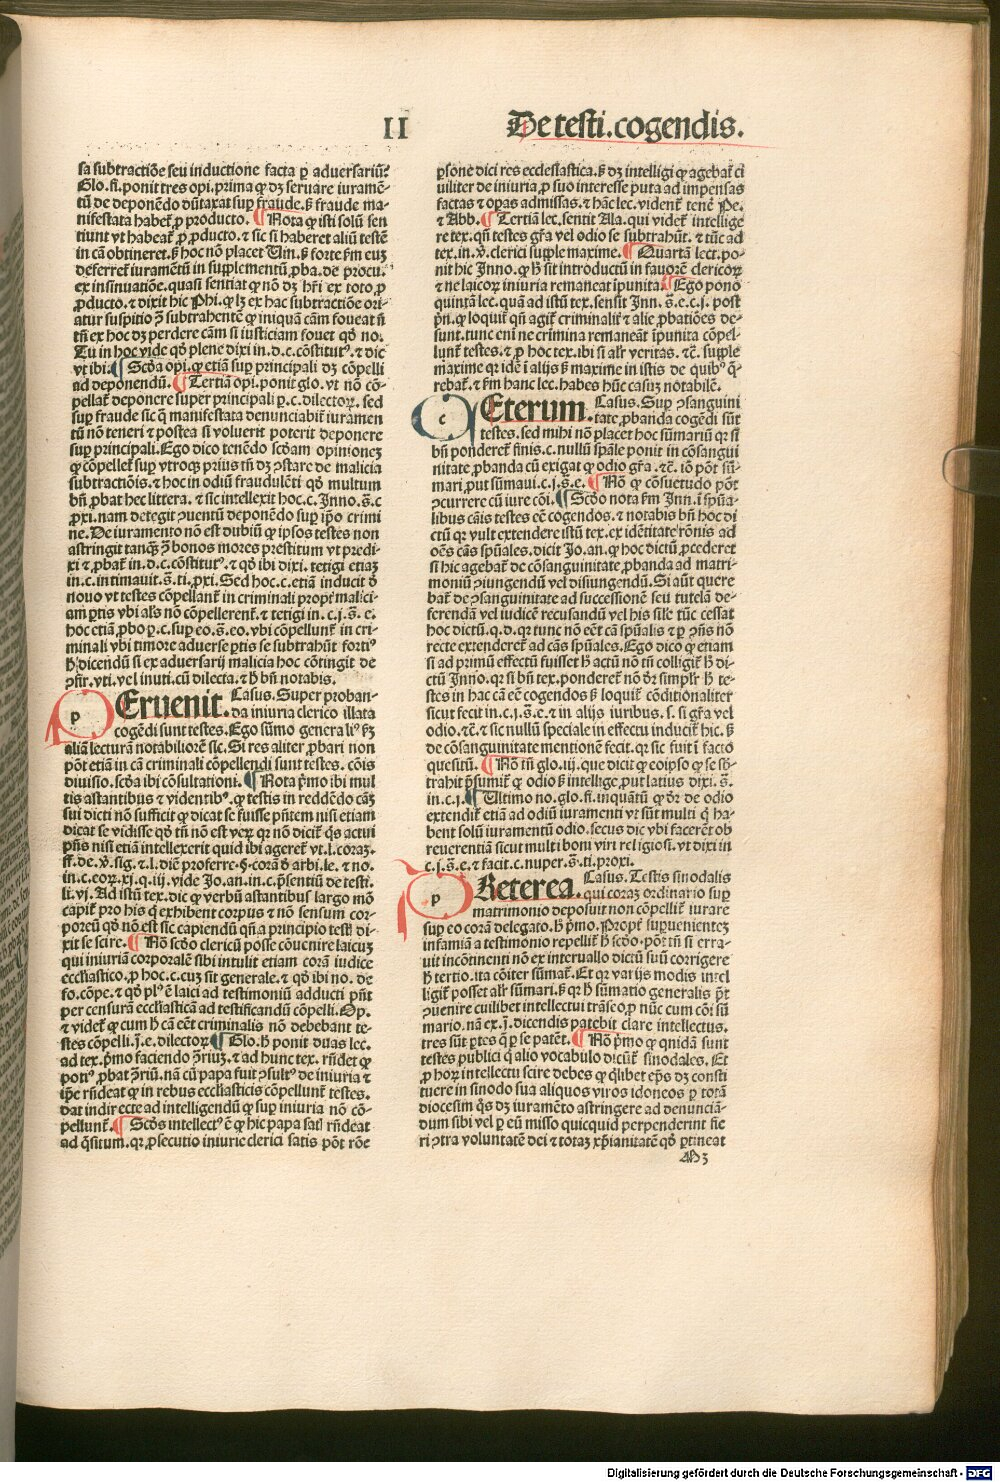 II
De testi. cogendis.
sa subtractiõe seu inductione facta ꝑ aduersariũ?
Glo. fi. ponit tres opi. prima ꝙ dꝫ seruare iuramẽ-
tũ de deponẽdo dũtaxat sup fraude. ß fraude ma-
nifestata habet̃ ꝓ producto. ¶ Nota ꝙ isti solũ sen
tiunt vt habeat̃ ꝓ ꝓducto. ⁊ sic si haberet aliũ testẽ
in cã obtineret. ß hoc nõ placet Vin. ß forte ẜm eum
deferret iuramẽtũ in supplementũ ꝓba. de procu.
ex insinuatiõe. quasi sentiat ꝙ nõ dꝫ hr̃i ex toto ꝓ
ꝓducto. ⁊ dixit hic Phi. ꝙ lꝫ ex hac subtractiõe ori-
atur suspitio ꝯ̃ subtrahentẽ ꝙ iniquã cãm foueat ñ
tñ ex hoc dꝫ perdere cãm si iusticiam fouet qď no.
Tu in hoc vide qď plene dixi in. d. c. cõstitutꝰ. ⁊ dic
vt ibi. ¶ Scďa opi. ꝙ etiã sup principali dꝫ cõpelli
ad deponendũ. ¶ Tertiã opi. ponit glo. vt nõ cõ-
pellat̃ deponere super principali ꝑ. c. dilectorꝝ. sed
sup fraude sic ꝙ manifestata denunciabit̃ iuramen
tũ nõ teneri ⁊ postea si voluerit poterit deponere
sup principali. Ego dico tenẽdo scďam opinionem
ꝙ cõpellet̃ sup vtroqꝫ prius tñ dꝫ ꝯstare de malicia
subtractiõis. ⁊ hoc in odiũ fraudulẽti qď multum
bñ ꝓbat hec littera. ⁊ sic intellexit hoc. c. Inno. s̃. c
ꝓxi. nam detegit ꝯuentũ deponẽdo sup ip̃o crimi
ne. De iuramento nõ est dubiũ ꝙ ipsos testes non
astringit tanqꝫ ꝯ̃ bonos mores prestitum vt predi-
xi ⁊ ꝓbat̃ in. d. c. cõstitutꝰ. ⁊ qď ibi dixi. tetigi etiam
in. c. intimauit. s̃. ti. ꝓxi. Sed hoc. c. etiã inducit ď
nouo vt testes cõpellant̃ in criminali propt̃ malici-
am ꝑtis vbi als nõ cõpellerent̃. ⁊ tetigi in. c. j. s̃. e.
hoc etiã ꝓbo ꝑ. c. sup eo. s̃. eo. vbi cõpellunt̃ in cri-
minali vbi timore aduerse ꝑtis se subtrahũt fortiꝰ
h̃ dicendũ si ex aduersarij malicia hoc cõtingit de
ꝯfir. vti. vel inuti. cũ dilecta. ⁊ h̃ bñ notabis.
pERuenit. Casus. Super proban-
da iniuria clerico illata
cogẽdi sunt testes. Ego sũmo generaliꝰ ẜm
aliã lecturã notabiliorẽ sic. Si res aliter ꝓbari non
põt etiã in cã criminali cõpellendi sunt testes. cõis
diuisio. scďa ibi cõsultationi. ¶ Nota p̃mo ibi mul
tis astantibus ⁊ videntibꝰ. ꝙ testis in reddẽdo cãm
sui dicti nõ sufficit ꝙ dicat se fuisse p̃ntem nisi etiam
dicat se vidisse qď tñ nõ est verꝝ qꝛ nõ dicit̃ qs actui
p̃ns nisi etiã intellexerit quid ibi ageret̃ vt. l. coram.
ff. de. v̾. sig. ⁊. l. diẽ proferre. §. corã ď arbi. le. ⁊ no.
in. c. eorꝝ. xj. q. iij. vide Jo. an. in. c. p̃sentiũ de testi.
li. vj. Ad istũ tex. dic ꝙ verbũ astantibus largo mõ
capit̃ pro his q̃ exhibent corpus ⁊ nõ sensum cor-
poreũ qď nõ est sic capiendũ qñ a principio testis di-
xit se scire. ¶ Nõ scďo clericũ posse cõuenire laicum
qui iniuriã corporalẽ sibi intulit etiam corã iudice
ecclesiastico. ꝓ hoc. c. cum sit generale. ⁊ qď ibi no. de
fo. cõpe. ⁊ qď plꝰ ẽ laici ad testimoniũ adducti pñt
per censurã ecclesiasticã ad testificandũ cõpelli. Op.
⁊ videt̃ ꝙ cum h̃ cã eẽt criminalis nõ debebant te-
stes cõpelli. j. e. dilectorꝝ ¶ Glo. h̃ ponit duas lec.
ad tex. p̃mo faciendo ꝯ̃riũ. ⁊ ad hunc tex. rñdet ꝙ
potiꝰ ꝓbat ꝯ̃riũ. nã cũ papa fuit ꝯsultꝰ de iniuria ⁊
ip̃e rñdeat ꝙ in rebus ecclesiasticis cõpellunt̃ testes.
dat indirecte ad intelligendũ ꝙ sup iniuria nõ cõ-
pellunt̃. ¶ Scďs intellectꝰ ẽ ꝙ hic papa satis rñdeat
ad q̃situm. qꝛ ꝓsecutio iniurie clerici satis põt rõe
ꝑsone dici res ecclesiastica. ß dꝫ intelligi ꝙ agebat̃ ci
uiliter de iniuria ꝓ suo interesse puta ad impensas
factas ⁊ oꝑas admissas. ⁊ hãc lec. vident̃ tenẽ Pe.
⁊ Abb. ¶ Tertiã lec. sentit Ala. qui videt̃ intellige
re tex. qñ testes gr̃a vel odio se subtrahũt. ⁊ tũc ad
tex. in. v̾. clerici supple maxime. ¶ Quartã lect. po-
nit hic Inno. ꝙ h̃ sit introductũ in fauorẽ clericorꝝ
⁊ ne laicorꝝ iniuria remaneat ipunita. ¶ Ego pono
quintã lec. quã ad istũ tex. sensit Inn. s̃. e. c. j. post
pñ. ꝙ loquit̃ qñ agit̃ criminalit̃ ⁊ alie ꝓbatiões de-
sunt. tunc eni ne crimina remaneãt ĩpunita cõpel-
lunt̃ testes. ⁊ ꝓ hoc tex. ibi si alr̃ veritas. ⁊c̃. supple
maxime qꝛ idẽ ĩ alijs ß maxime in istis de quibꝰ q̃-
rebat̃. ⁊ ẜm hanc lec. habes hũc casum notabilẽ.
cETerum. Casus. Sup ꝯsanguini
tate ꝓbanda cogẽdi sũt
testes. sed mihi nõ placet hoc sũmariũ qꝛ si
bñ ponderet̃ finis. c. nullũ spãle ponit in cõsangui
nitate ꝓbanda cũ exigat ꝙ odio gr̃a. ⁊c̃. iõ põt sũ-
mari put sũmaui. c. j. s̃. e. ¶ Nõ ꝙ cõsuetudo põt
ꝯcurrere cũ iure cõi. ¶ Scďo nota ẜm Inn. ĩ sp̃ua-
libus cãis testes eẽ cogendos. ⁊ notabis bñ hoc di
ctũ qꝛ vult extendere istũ tex. ex idẽtitate rõnis ad
oẽs cãs sp̃uales. dicit Jo. an. ꝙ hoc dictũ ꝓcederet
si hic agebat̃ de cõsanguinitate ꝓbanda ad matri-
moniũ ꝯiungendũ vel disiungendũ. Si aũt quere
bat̃ de ꝯsanguinitate ad successionẽ seu tutelã de-
ferendã vel iudicẽ recusandũ vel his sile tũc cessat
hoc dictũ. q. d. qꝛ tunc nõ eẽt cã sp̃ualis ⁊ ꝑ ꝯñs nõ
recte extenderet̃ ad cãs sp̃uales. Ego dico ꝙ etiam
si ad primũ effectũ fuisset h̃ actũ nõ tñ colligit̃ h̃ di-
ctũ Inno. qꝛ si bñ tex. ponderet̃ nõ dr̃ simplr̃ h̃ te-
stes in hac cã eẽ cogendos ß loquit̃ cõditionaliter
sicut fecit in. c. j. s̃. e. ⁊ in alijs iuribus. s. si gr̃a vel
odio. ⁊c̃. ⁊ sic nullũ speciale in effectu inducit̃ hic. ß
de cõsanguinitate mentionẽ fecit. qꝛ sic fuit ĩ facto
quesitũ. ¶ Nõ tñ glo. iij. que dicit ꝙ eoipso ꝙ se sb̃-
trahit p̃sumit̃ ꝙ odio ß intellige. put latius dixi. s̃.
in. c. j. ¶ Ultimo no. glo. fi. inquãtũ ꝙ dr̃ de odio
extendit̃ etiã ad odiũ iuramenti vt sũt multi q̃ ha-
bent solũ iuramentũ odio. secus dic vbi facerẽt ob
reuerentiã sicut multi boni viri religiosi. vt dixi in
c. j. s̃. e. ⁊ facit. c. nuper. s̃. ti. proxi.
pREterea. Casus. Testis sinodalis
qui coram ordinario sup
matrimonio deposuit non cõpellit̃ iurare
sup eo corã delegato. h̃ p̃mo. Propt̃ supuenientem
infamiã a testimonio repellit̃ h̃ scďo. põt tñ si erra-
uit incõtinenti nõ ex interuallo dictũ suũ corrigere
h̃ tertio. ita cõiter sũmat̃. Et qꝛ varijs modis intel
ligit̃ posset alr̃ sũmari. ß qꝛ h̃ sũmatio generalis p̃t
ꝯuenire cuilibet intellectui trãseo ꝓ nũc cum cõi sũ
mario. nã ex. j. dicendis patebit clare intellectus.
tres sũt ꝑtes q̃ ꝑ se patẽt. ¶ Nõ p̃mo ꝙ quidã sunt
testes publici q̃ alio vocabulo dicũt̃ sinodales. Et
ꝓ horꝝ intellectu scire debes ꝙ q̃libet ep̃s dꝫ consti
tuere in sinodo sua aliquos viros idoneos ꝑ totã
diocesim q̃s dꝫ iuramẽto astringere ad denunciã-
dum sibi vel ꝑ eũ misso quicquid perpenderint fie
ri ꝯtra voluntatẽ dei ⁊ totam xp̃ianitatẽ qď ꝑtineat
M 3
Digitalisierung gefördert durch die Deutsche Forschungsgemeinschaft - DFG